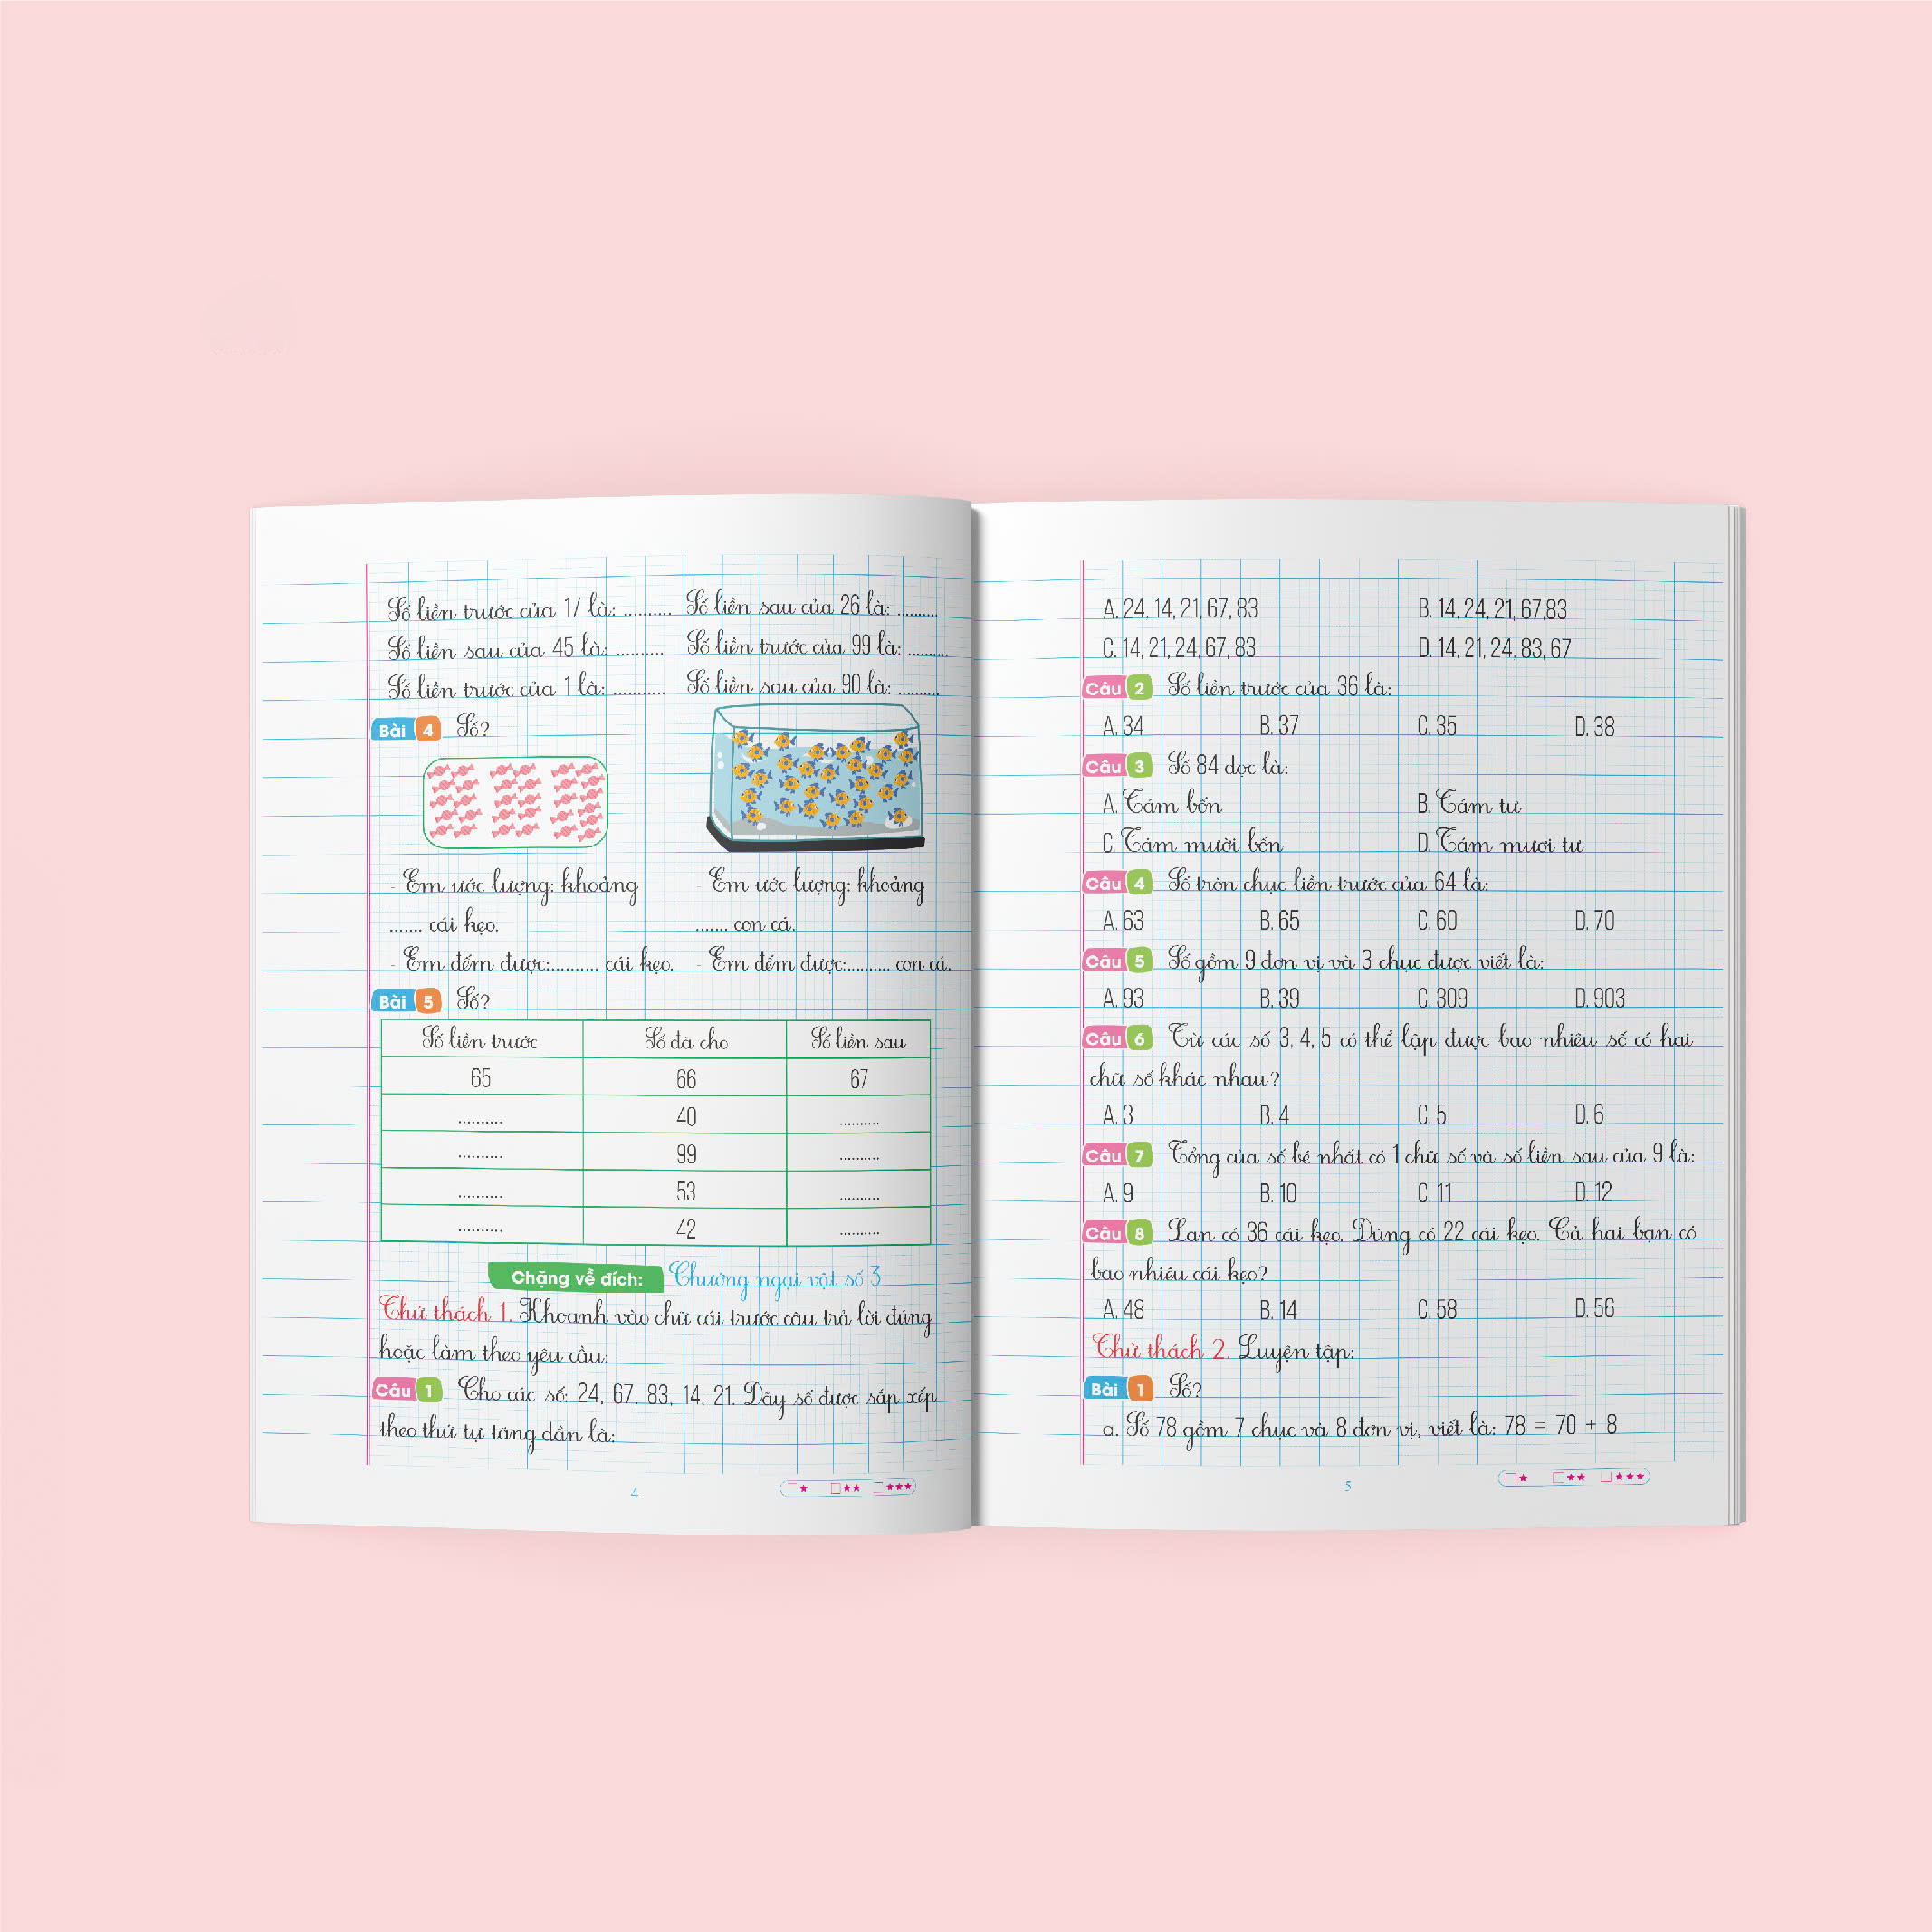 Số liền trước của 17 là: .......... Số liền sau của 26 là: ..........
Số liền sau của 45 là: .......... Số liền trước của 99 là: ..........
Số liền trước của 1 là: .......... Số liền sau của 90 là: ..........
Bài 4 Số?
- Em ước lượng: khoảng
....... cái kẹo.
- Em đếm được:.......... cái kẹo.
- Em ước lượng: khoảng
....... con cá.
- Em đếm được:.......... con cá.
Bài 5 Số?
Số liền trước Số đã cho Số liền sau
65 66 67
.......... 40 ..........
.......... 99 ..........
.......... 53 ..........
.......... 42 ..........
Chặng về đích: Chướng ngại vật số 3
Thử thách 1. Khoanh vào chữ cái trước câu trả lời đúng
hoặc làm theo yêu cầu:
Câu 1 Cho các số: 24, 67, 83, 14, 21. Dãy số được sắp xếp
theo thứ tự tăng dần là:
4
A. 24, 14, 21, 67, 83 B. 14, 24, 21, 67,83
C. 14, 21, 24, 67, 83 D. 14, 21, 24, 83, 67
Câu 2 Số liền trước của 36 là:
A. 34 B. 37 C. 35 D. 38
Câu 3 Số 84 đọc là:
A. Tám bốn B. Tám tư
C. Tám mười bốn D. Tám mươi tư
Câu 4 Số tròn chục liền trước của 64 là:
A. 63 B. 65 C. 60 D. 70
Câu 5 Số gồm 9 đơn vị và 3 chục được viết là:
A. 93 B. 39 C. 309 D. 903
Câu 6 Từ các số 3, 4, 5 có thể lập được bao nhiêu số có hai
chữ số khác nhau?
A. 3 B. 4 C. 5 D. 6
Câu 7 Tổng của số bé nhất có 1 chữ số và số liền sau của 9 là:
A. 9 B. 10 C. 11 D. 12
Câu 8 Lan có 36 cái kẹo. Dũng có 22 cái kẹo. Cả hai bạn có
bao nhiêu cái kẹo?
A. 48 B. 14 C. 58 D. 56
Thử thách 2. Luyện tập:
Bài 1 Số?
a. Số 78 gồm 7 chục và 8 đơn vị, viết là: 78 = 70 + 8
5